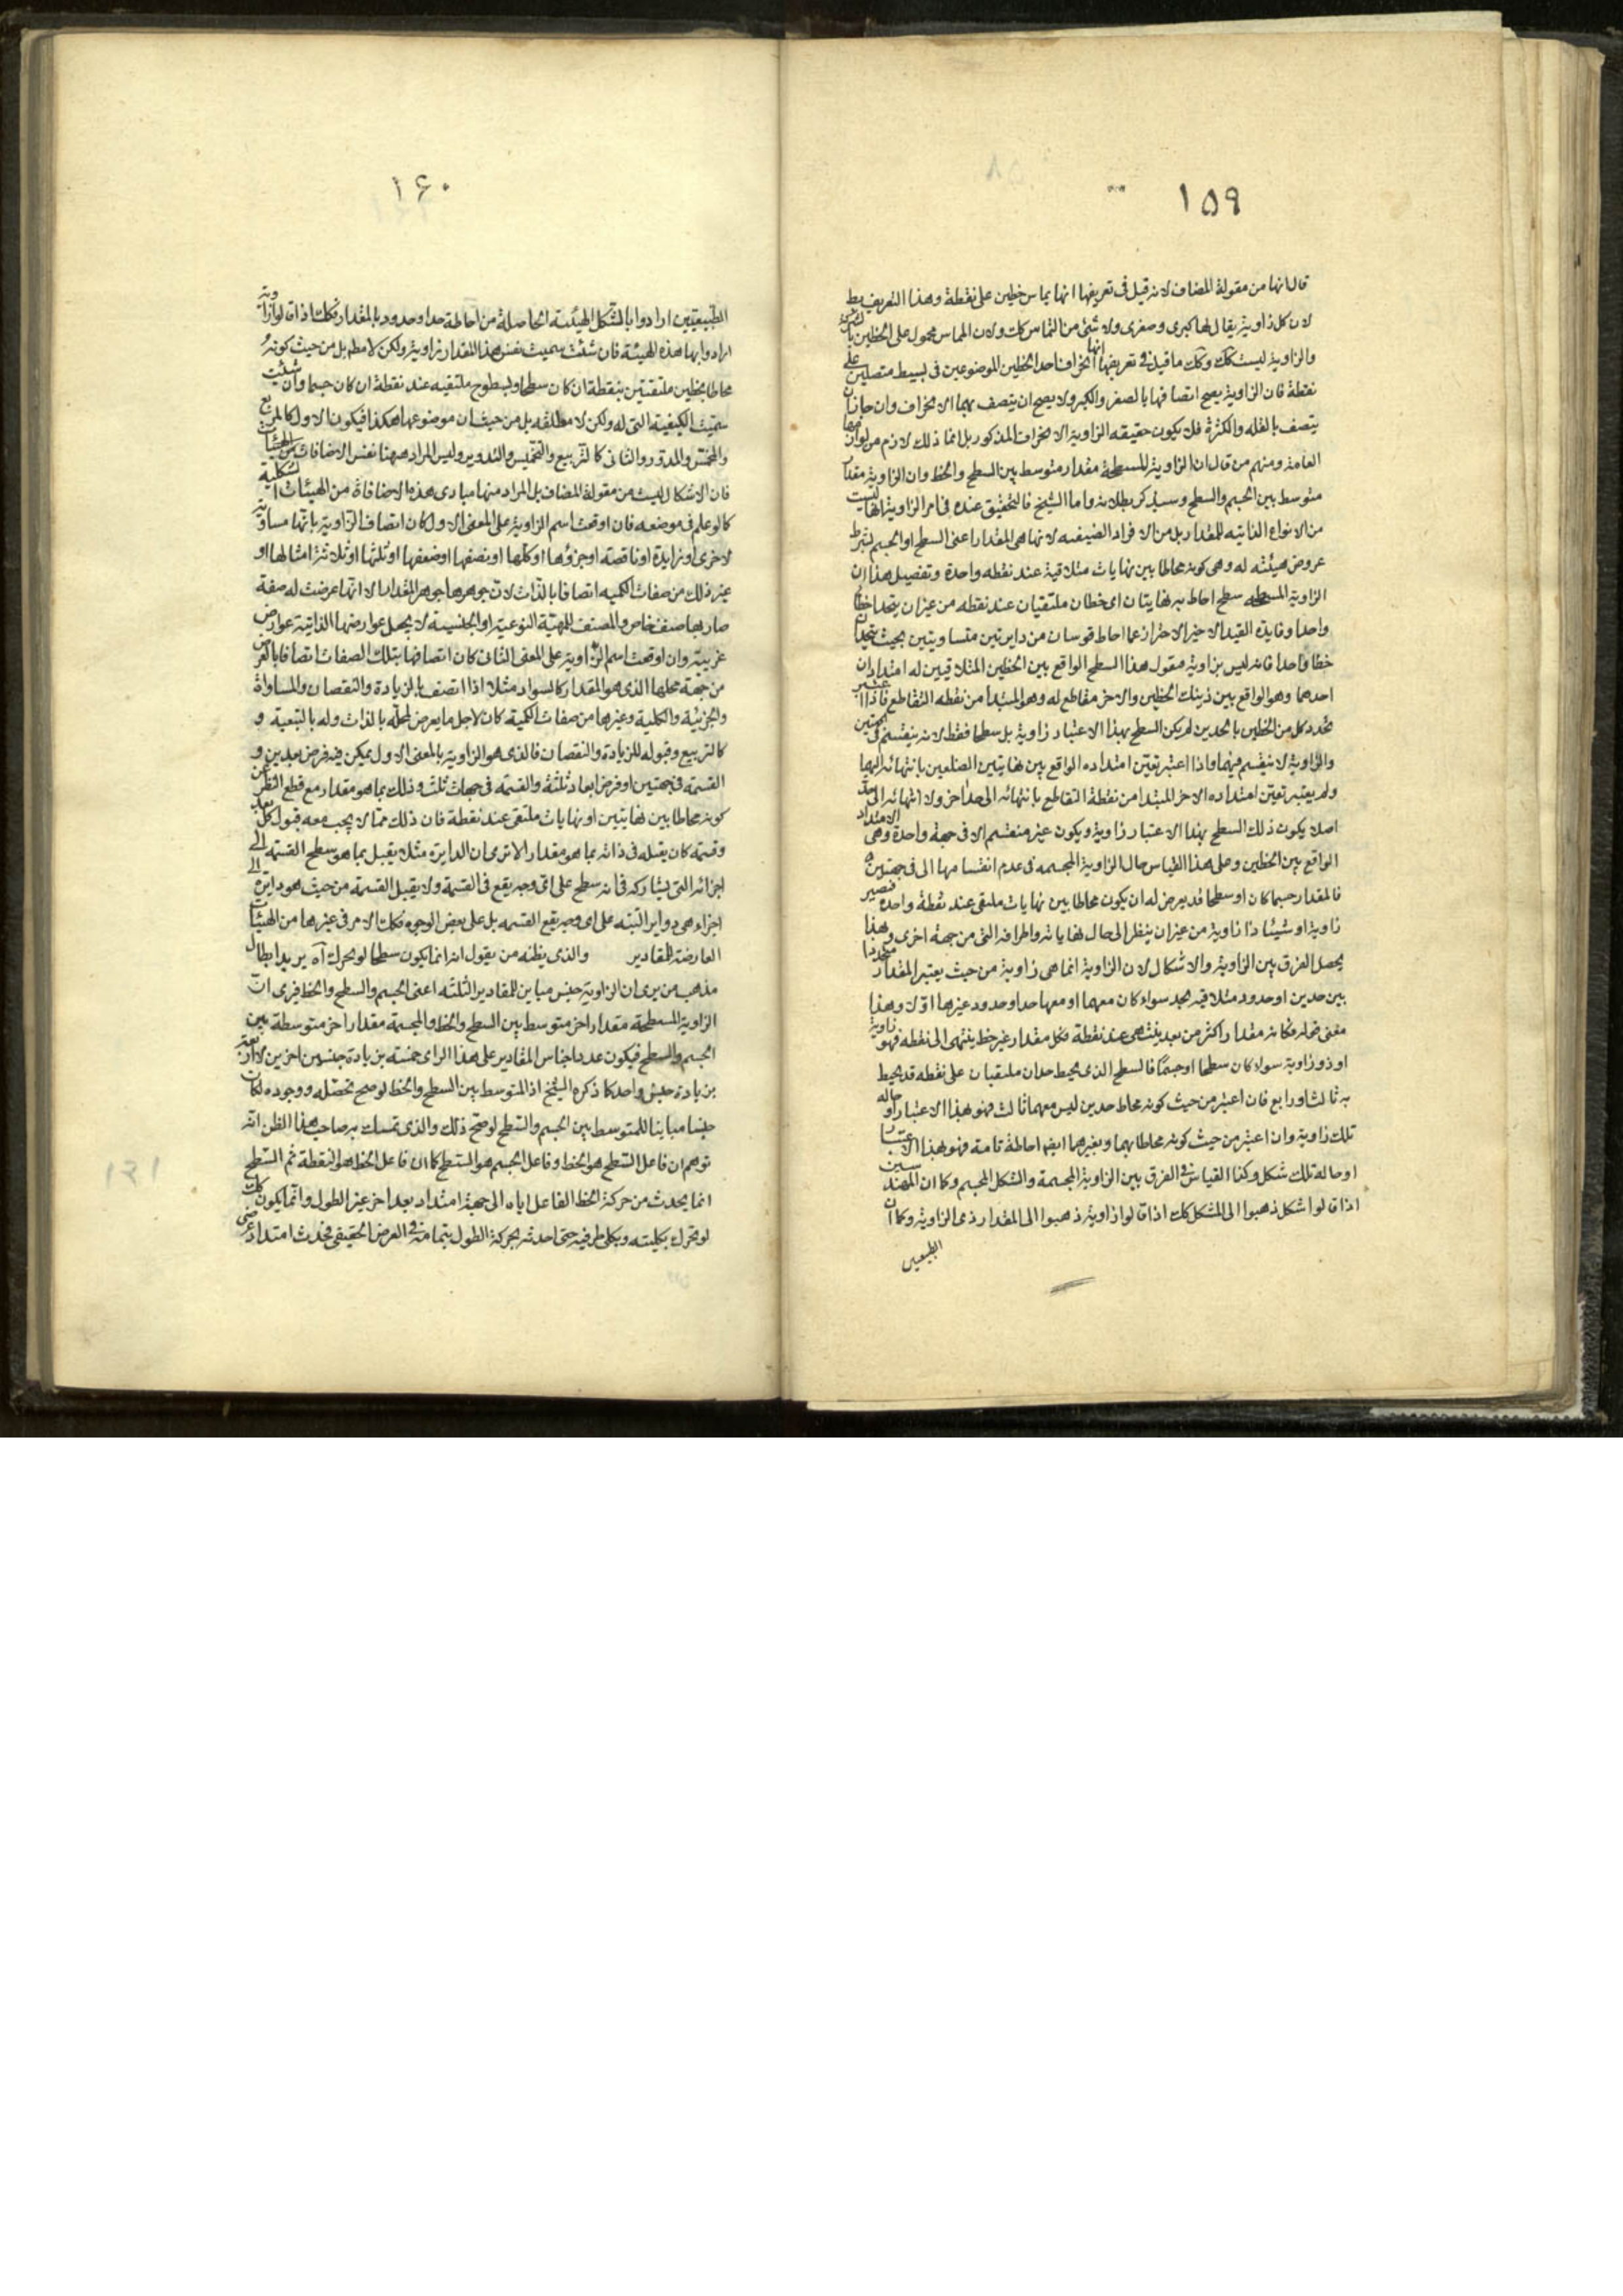 ١٥٩
قال انها من مقولة المضاف لانه قيل فى تعريفها انها تماس خطين على نقطة وهذا التعريف بط
لان كل زاوية يقال لها كبرى وصغرى ولا شئ من التماس كك ولان المماس محمول على الخطين
والزاوية ليست كك وكك ما قيل فى تعريفها انها انحراف احد الخطين الموضوعين فى بسيط متصلين على
نقطة فان الزاوية يصح اتصافها بالصغر والكبر ولا يصح ان يتصف بهما الانحراف وان جاز ان
يتصف بالقلة والكثرة فلا يكون حقيقه الزاوية الانحراف المذكور بل انما ذلك لازم من لوازمها
العامة ومنهم من قال ان الزاوية المسطحة مقدار متوسط بين السطح والخط وان الزاوية مقدار
متوسط بين الجسم والسطح وسيذكر بطلانه واما الشيخ فالتحقيق عنده فى امر الزاوية انها ليست
من الانواع الذاتيه للمقدار بل من الافراد الصنيفه لانها هى المقدار اعنى السطح او الجسم بشرط
عروض هيئته له وهى كونه محاطا بين نهايات متلاقية عند نقطه واحدة وتفصيل هذا ان
الزاوية المسطحه سطح احاط به نهايتان اى خطان ملتقيان عند نقطه من غير ان يتحدا خطا
واحدا وفايدة القيد الاخير الاحتراز عما احاط قوسان من دايرتين متساويتين بحيث يتحدان
خطا واحدا فانه ليس بزاوية فنقول هذا السطح الواقع بين الخطين المتلاقيين له امتدادان
احدهما وهو الواقع بين ذينك الخطين والاخر مقاطع له وهو المبتدأ من نقطه التقاطع فاذا اعتبر
تحدد كل من الخطين بالحدين لم يكن السطح بهذا الاعتبار زاوية بل سطحا فقط لانه ينقسم فى الجهتين
والزاوية لا ينقسم فيهما واذا اعتبر تعين امتداده الواقع بين نهايتين الضلعين بانتهائه اليهما
ولم يعتبر تعين امتداده الاخر المبتدا من نقطة التقاطع بانتهائه الى حد اخر ولا انتهائه الى حد
اصلا يكون ذلك السطح بهذا الاعتبار زاوية ويكون غير منقسم الا فى جهة واحدة وهى الامتداد
الواقع بين الخطين وعلى هذا القياس حال الزاوية المجسمه فى عدم انقسامها الى فى جهتين
فالمقدار جسما كان او سطحا قد يعرض له ان يكون محاطا بين نهايات ملتقى عند نقطة واحدة فيصير
زاوية او شيئا ذا زاوية من غير ان ينظر الى حال نهاياته واطرافه التى من جهة اخرى وبهذا
يحصل الفرق بين الزاوية والاشكال لان الزاوية انما هى زاوية من حيث يعتبر المقدار متحددا
بين حدين او حدود متلاقيه بحد سواء كان معهما او معها حد او حدود غيرها اولا وهذا
معنى قوله فكانه مقدار اكثر من بعد ينتهى عند نقطة فكل مقدار غير خط ينتهى الى نقطه فهو زاوية
او ذو زاوية سواء كان سطحا او جسما فالسطح الذى يحيط حدان ملتقيان على نقطه قد يحيط
به ثالث او رابع فان اعتبر من حيث كونه محاط حدين ليس معهما ثالث فهو بهذا الاعتبار او حاله
تلك زاوية وان اعتبر من حيث كونه محاطا بهما وبغيرهما ايضا احاطة تامة فهو بهذا الاعتبار
او حاله تلك شكل وكذا القياس فى الفرق بين الزاوية المجسمة والشكل المجسم وكما ان المهندسين
اذا قالوا شكل ذهبوا الى المشكل كك اذا قالوا زاوية ذهبوا الى المقدار ذى الزاوية وكما ان
الطبيعيين
١۶٠
الطبيعيين ارادوا بالشكل الهيئة الحاصلة من احاطة حد او حدود بالمقدار فكك اذا قالوا زاوية
ارادوا بها هذه الهيئة فان شئت سميت نفس هذا المقدار زاوية ولكن لا مطم بل من حيث كونه
محاطا بخطين ملتقيتين بنقطة ان كان سطحا وبسطوح ملتقيه عند نقطة ان كان جسما وان شئت
سميت الكيفية التى له ولكن لا مطلقه بل من حيث ان موضوعها هكذا فيكون الاول كالمربع
والمخمس والمدور والثانى كالتربيع والتخميس والتدوير وليس المراد هيهنا نفس الاضافات
فان الاشكال ليست من مقولة المضاف بل المراد منها مبادى هذه الاضافات من الهيئات الشكلية
كما لو علم فى موضعه فان اوقعت اسم الزاوية على المعنى الاول كان اتصاف الزاوية بانها مساوية
لاخرى او زايدة او ناقصة او جزؤها او كلها او نصفها او ضعفها او ثلثها او ثلاثة امثالها او
غير ذلك من صفات الكميه اتصافا بالذات لان جوهرها جوهر المقدار الا انها عرضت له صفة
صار بها صنف خاص والمصنف للمهية النوعية او الجنسية لا يجعل عوارضها الذاتية عوارض
غريبة وان اوقعت اسم الزاوية على المعنى الثانى كان اتصافها بتلك الصفات اتصافا بالعرض
من جهة محلها الذى هو المقدار كالسواد مثلا اذا اتصف بالزيادة والنقصان والمساواة
والجزئية والكلية وغيرها من صفات الكمية كان لاجل ما يعرض لمحله بالذات وله بالتبعية و
كالتربيع وقبوله للزيادة والنقصان فالذى هو الزاوية بالمعنى الاول يمكن فيه فرض بعدين و
القسمة فى جهتين او فرض ابعاد ثلثة والقسمه فى جهات ثلث وذلك بما هو مقدار مع قطع النظر عن
كونه محاطا بين نهايتين او نهايات ملتقى عند نقطة فان ذلك مما لا يجب معه قبول كل بعد
وقسمة كان يقبله فى ذاته بما هو مقدار الا ترى ان الدايرة مثلا يقبل بما هو سطح القسمة الى
اجزائه التى يشاركه فى انه سطح على اى وجه يقع فى القسمة ولا يقبل القسمة من حيث هو دايرة الى
اجزاء هى دواير البته على اى وجه يقع القسمه بل على بعض الوجوه فكك الامر فى غيرها من الهيئات
العارضة للمقادير والذى يظنه من يقول انه انما يكون سطحا لو تحرك آه يريد ابطال
مذهب من يرى ان الزاوية جنس مباين للمقادير الثلثه اعنى الجسم والسطح والخط فيرى ان
الزاوية المسطحة مقدار اخر متوسط بين السطح والخط والمجسمة مقدار اخر متوسطة بين
الجسم والسطح فيكون عدد اجناس المقادير على هذا الراى خمسته بزيادة جنسين اخرين لا اربعة
بزيادة جنس واحد كما ذكره الشيخ اذ المتوسط بين السطح والخط لو صح تحصله ووجوده لكان
جنسا مباينا للمتوسط بين الجسم والسطح لو صح ذلك والذى تمسك به صاحب هذا الظن انه
توهم ان فاعل السطح هو الخط وفاعل الجسم هو السطح كما ان فاعل الخط هو النقطة ثم السطح
انما يحدث من حركة الخط الفاعل اياه الى جهة امتداد بعد اخر غير الطول وانما يكون كك
لو تحرك بكليته وبكلى طرفيه حتى احدثه بحركة الطول بتمامه فى العرض الحقيقى فحدث امتداد عرضى
١٦١